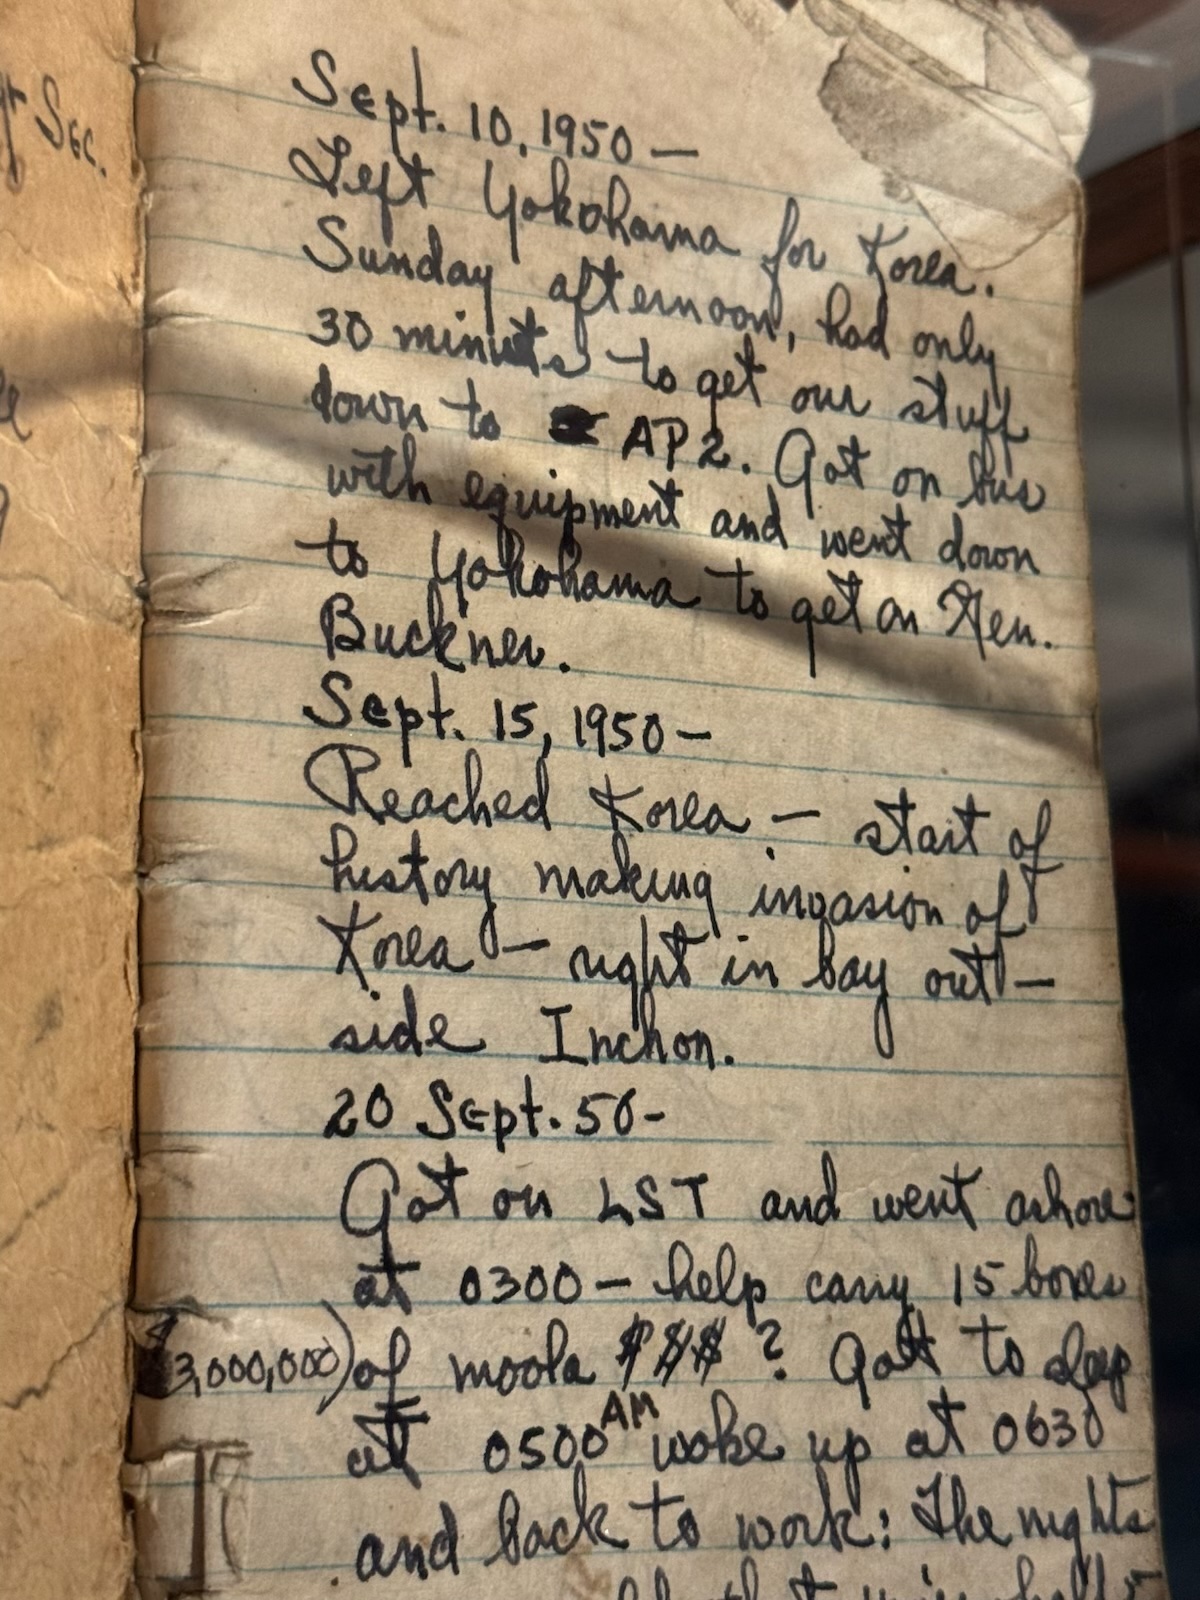 Sec.
Sept. 10, 1950 —
Left Yokohama for Korea.
Sunday afternoon, had only
30 minuts to get our stuff
down to AP2. Got on bus
with equipment and went down
to Yokohama to get on Gen.
Buckner.
Sept. 15, 1950 —
Reached Korea — start of
history making invasion of
Korea — right in bay out-
side Inchon.
20 Sept. 50 -
Got on LST and went ashore
at 0300 — help carry 15 boxes
3,000,000) of moola $$$ ? Gott to sleep
at 0500 AM woke up at 0630
and back to work: The nights